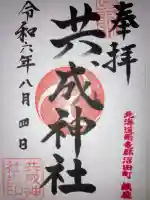 奉拝
共成神社
令和六年八月四日
北海道雨竜郡沼田町 鎮座
共成神社之印